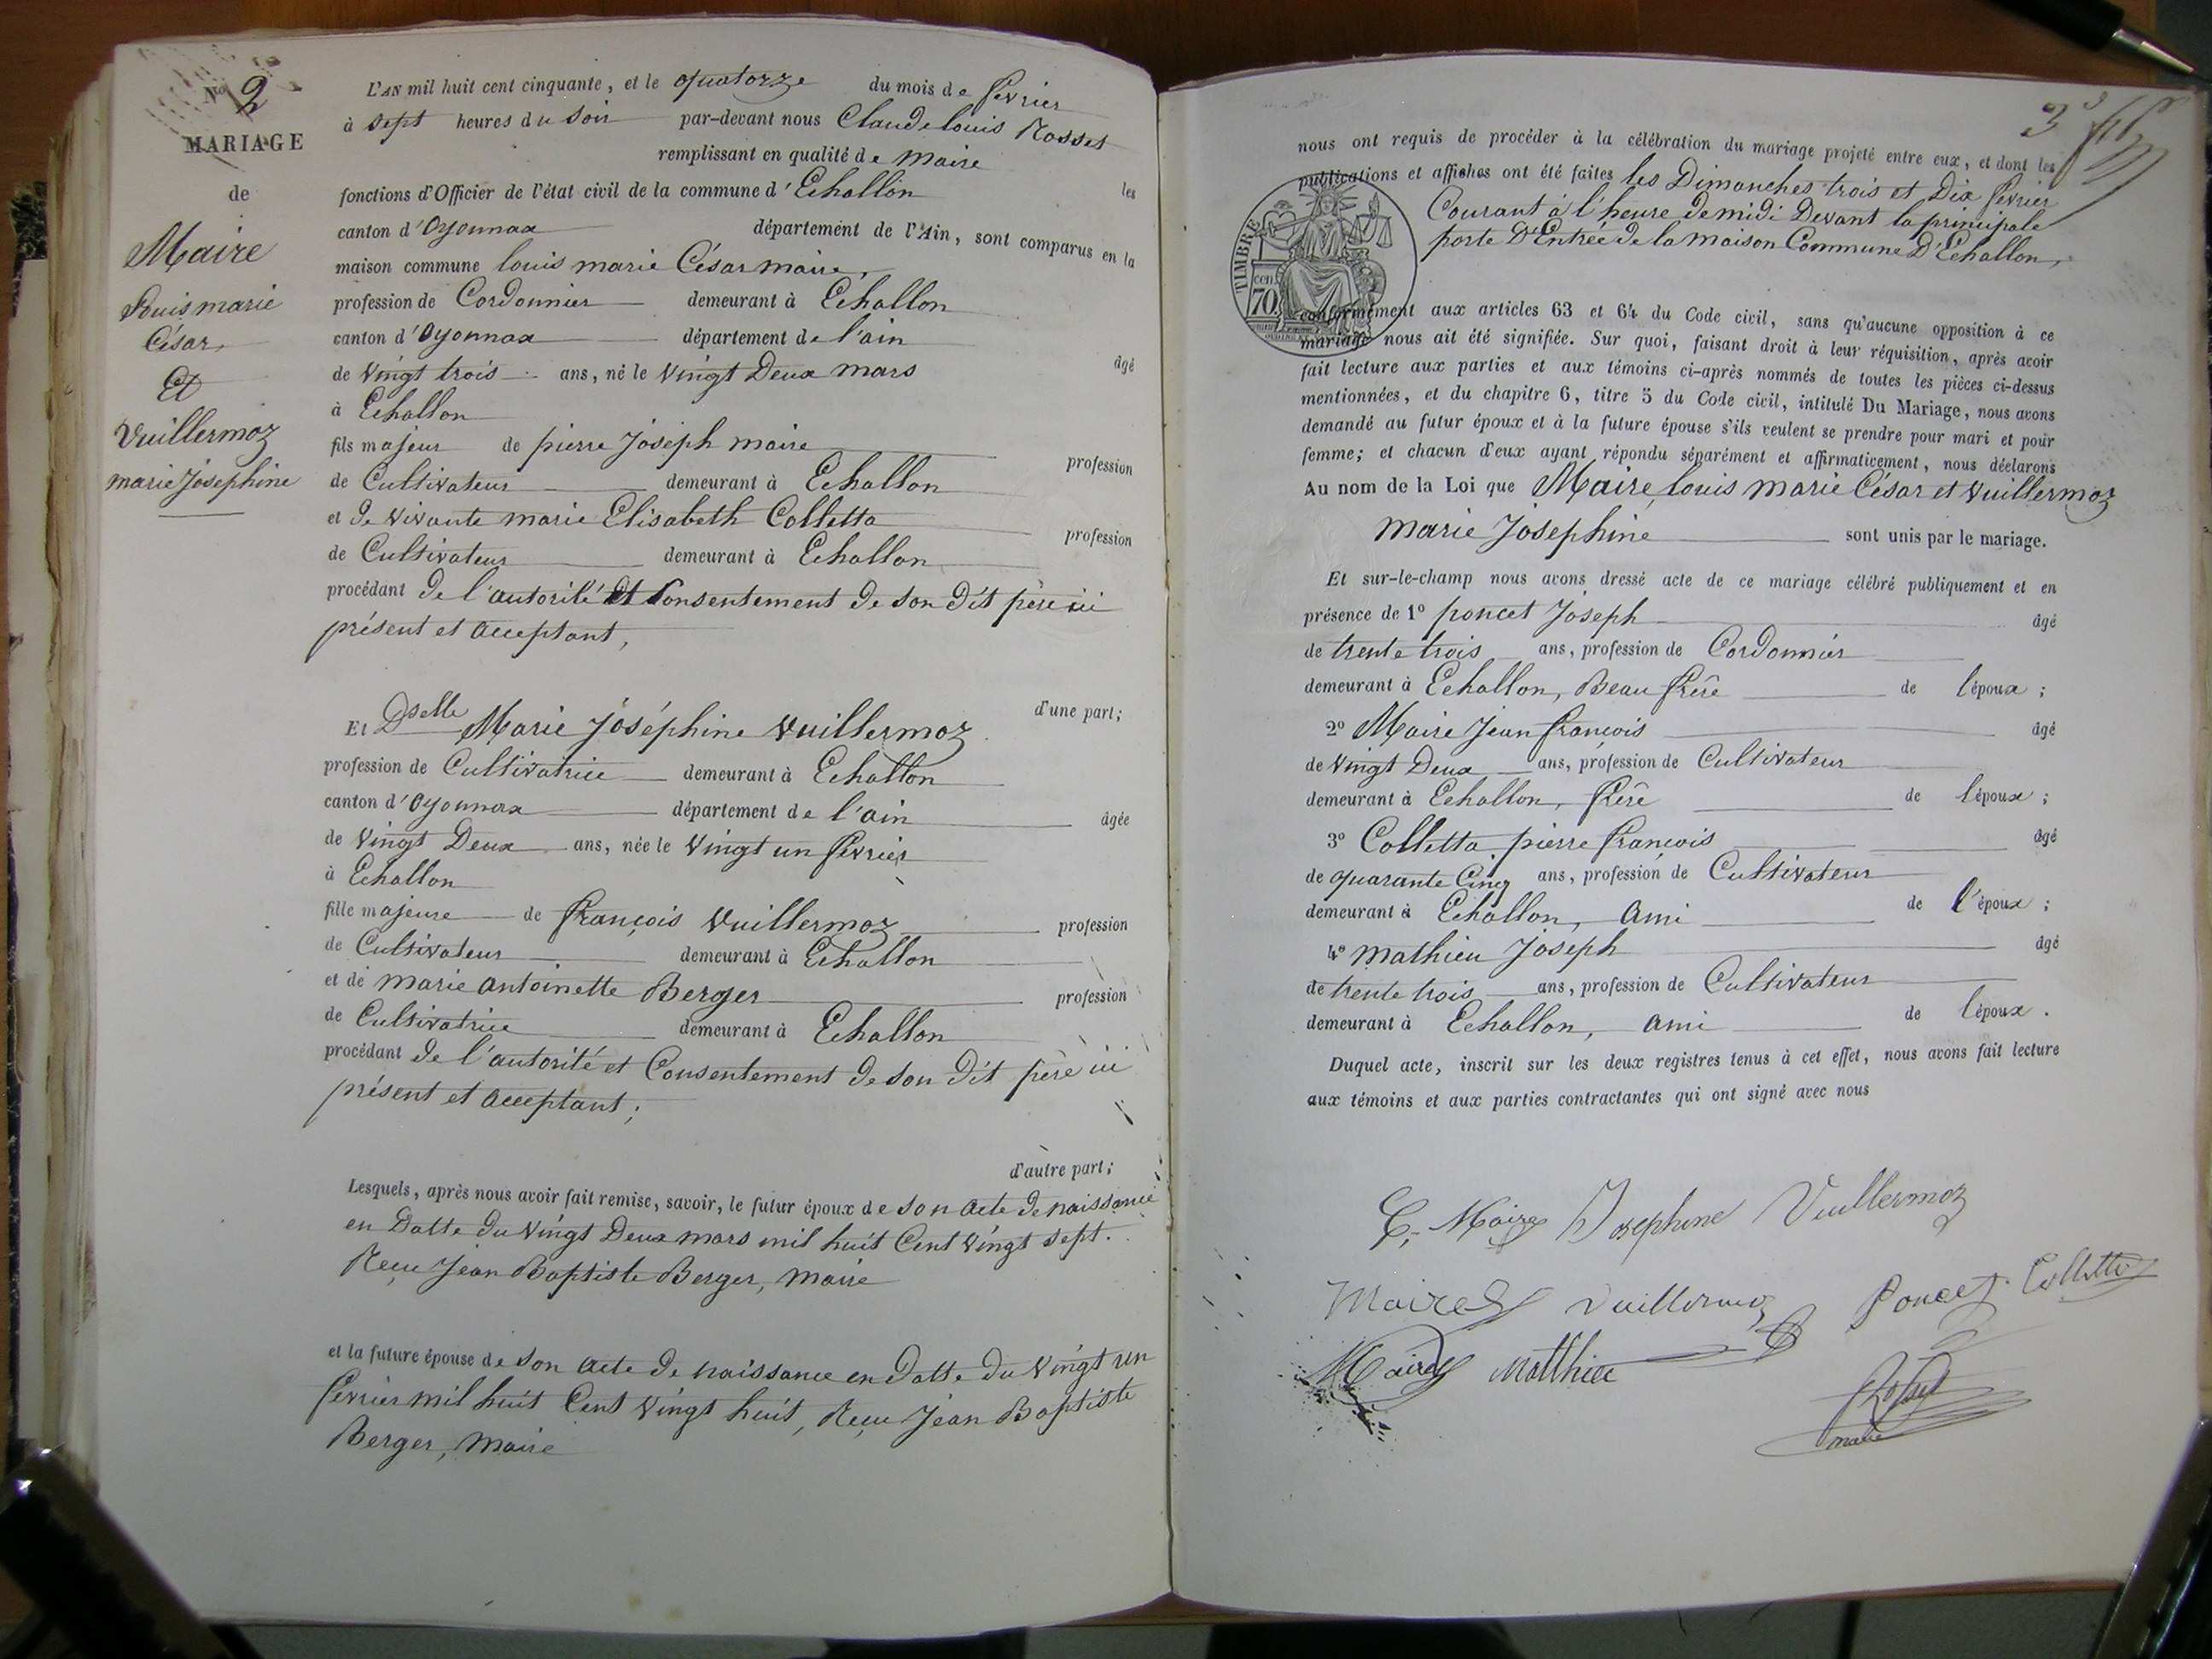 No 2
MARIAGE
de
Maire
Louis marie
César,
Et
Vuillermoz
marie Josephine
L'AN mil huit cent cinquante, et le quatorze du mois de février
à sept heures du soir par-devant nous Claude louis Rosset
remplissant en qualité de maire les
fonctions d'Officier de l'état civil de la commune d'Echallon
canton d'Oyonnax département de l'Ain, sont comparus en la
maison commune louis marie César maire,
profession de Cordonnier demeurant à Echallon
canton d'Oyonnax département de l'ain âgé
de vingt trois ans, né le vingt Deux mars
à Echallon
fils majeur de pierre Joseph maire profession
de Cultivateur demeurant à Echallon
et de vivante marie Elisabeth Colletta profession
de Cultivateur demeurant à Echallon
procédant de l'autorité et Consentement de son dit père ici
présent et acceptant,
d'une part;
Et Dselle Marie Joséphine Vuillermoz
profession de Cultivatrice demeurant à Echallon
canton d'Oyonnax département de l'ain âgée
de vingt Deux ans, née le vingt un février
à Echallon
fille majeure de françois Vuillermoz profession
de Cultivateur demeurant à Echallon
et de marie antoinette Berger profession
de Cultivatrice demeurant à Echallon
procédant de l'autorité et Consentement de son dit père ici
présent et acceptant;
d'autre part;
Lesquels, après nous avoir fait remise, savoir, le futur époux de son acte de naissance
en Datte du vingt Deux mars mil huit Cent vingt sept.
Reçu Jean Baptiste Berger, maire
et la future épouse de son acte de naissance en Datte du vingt un
février mil huit Cent vingt huit, Reçu Jean Baptiste
Berger, maire
3e
nous ont requis de procéder à la célébration du mariage projeté entre eux, et dont les
publications et affiches ont été faites les Dimanches trois et Dix février
Courant à l'heure de midi Devant la principale
porte D'Entrée de la maison Commune D'Echallon,
TIMBRE
70 cen
conformément aux articles 63 et 64 du Code civil, sans qu'aucune opposition à ce
mariage nous ait été signifiée. Sur quoi, faisant droit à leur réquisition, après avoir
fait lecture aux parties et aux témoins ci-après nommés de toutes les pièces ci-dessus
mentionnées, et du chapitre 6, titre 5 du Code civil, intitulé Du Mariage, nous avons
demandé au futur époux et à la future épouse s'ils veulent se prendre pour mari et pour
femme; et chacun d'eux ayant répondu séparément et affirmativement, nous déclarons
Au nom de la Loi que Maire louis marie César et Vuillermoz
marie Josephine sont unis par le mariage.
Et sur-le-champ nous avons dressé acte de ce mariage célébré publiquement et en
présence de 1º poncet Joseph âgé
de trente trois ans, profession de Cordonnier
demeurant à Echallon, Beau frère de l'époux;
2º Maire Jean françois âgé
de vingt Deux ans, profession de Cultivateur
demeurant à Echallon, frère de l'époux;
3º Colletta pierre françois âgé
de quarante Cinq ans, profession de Cultivateur
demeurant à Echallon, ami de l'époux;
4º mathieu Joseph âgé
de trente trois ans, profession de Cultivateur
demeurant à Echallon, ami de l'époux.
Duquel acte, inscrit sur les deux registres tenus à cet effet, nous avons fait lecture
aux témoins et aux parties contractantes qui ont signé avec nous
C. Maire Josephine Vuillermoz
Maire Vuillermoz Poncet Colletta
Maire Matthieu
Rosset
maire